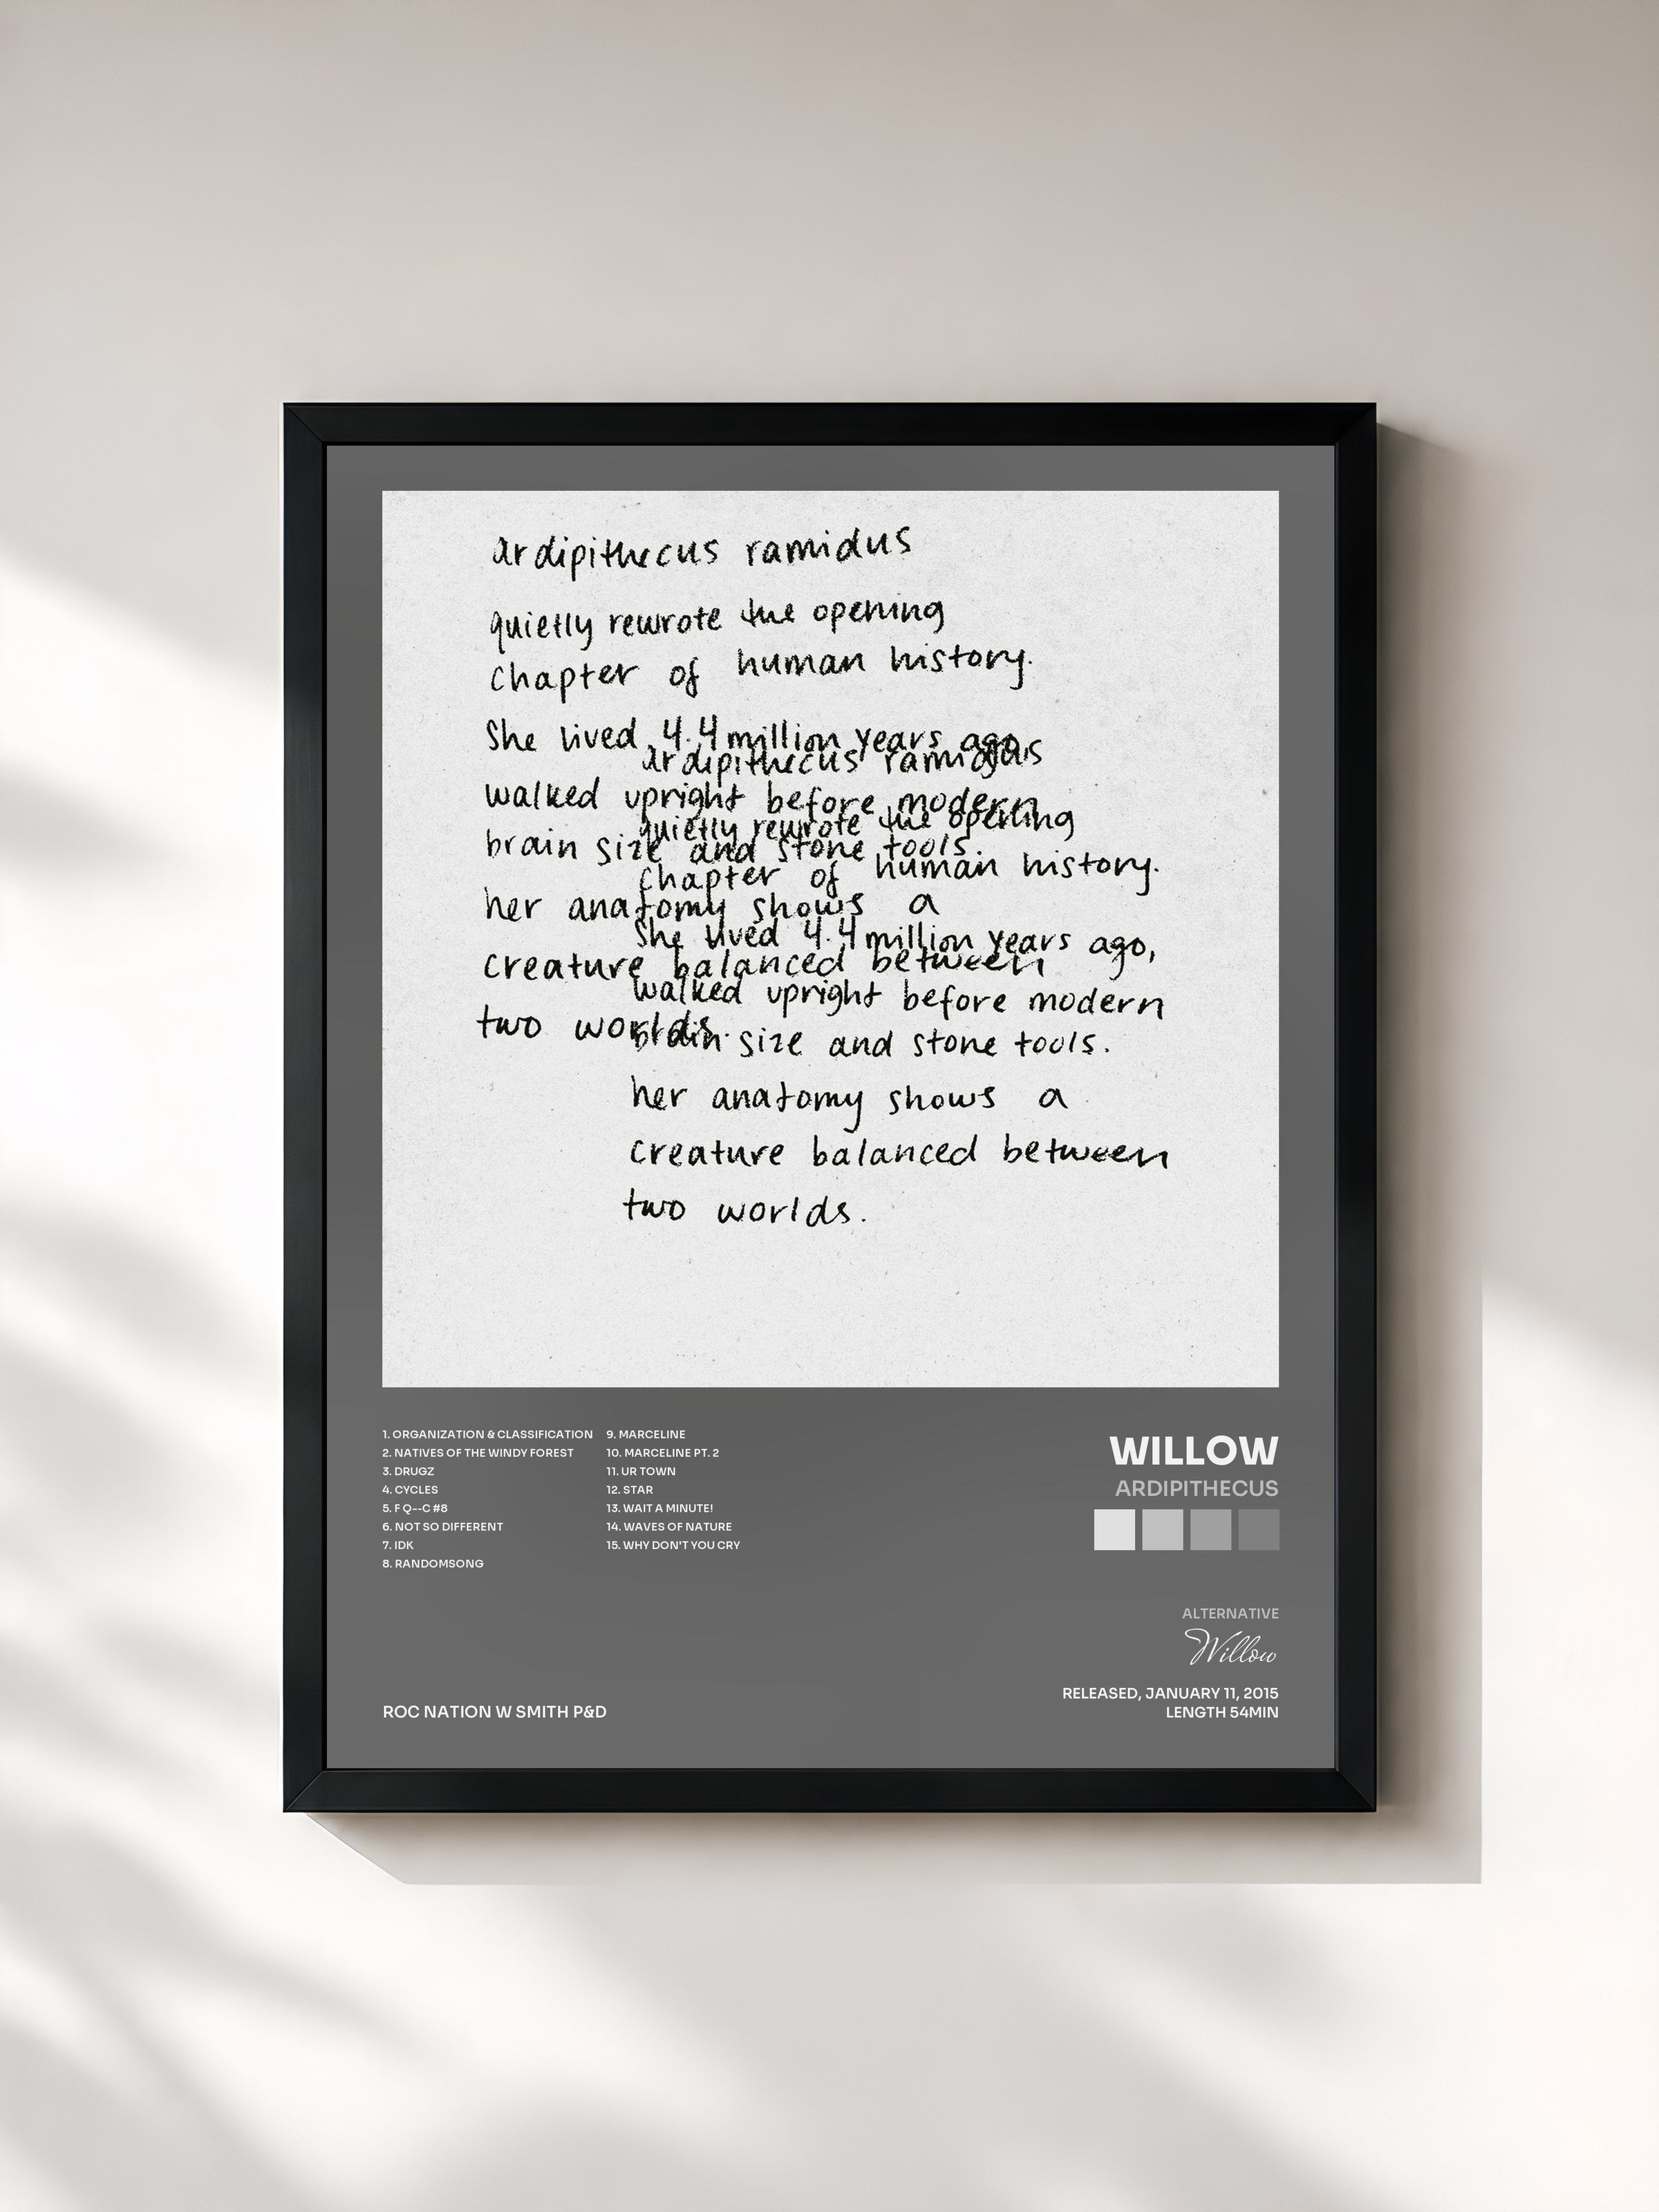 ardipithecus ramidus
quietly rewrote the opening
chapter of human history.
She lived 4.4 million years ago,
walked upright before modern
brain size and stone tools.
her anatomy shows a
creature balanced between
two worlds.
ardipithecus ramidus
quietly rewrote the opening
chapter of human history.
She lived 4.4 million years ago,
walked upright before modern
brain size and stone tools.
her anatomy shows a
creature balanced between
two worlds.
1. ORGANIZATION & CLASSIFICATION
2. NATIVES OF THE WINDY FOREST
3. DRUGZ
4. CYCLES
5. F Q--C #8
6. NOT SO DIFFERENT
7. IDK
8. RANDOMSONG
9. MARCELINE
10. MARCELINE PT. 2
11. UR TOWN
12. STAR
13. WAIT A MINUTE!
14. WAVES OF NATURE
15. WHY DON'T YOU CRY
WILLOW
ARDIPITHECUS
ALTERNATIVE
Willow
RELEASED, JANUARY 11, 2015
LENGTH 54MIN
ROC NATION W SMITH P&D